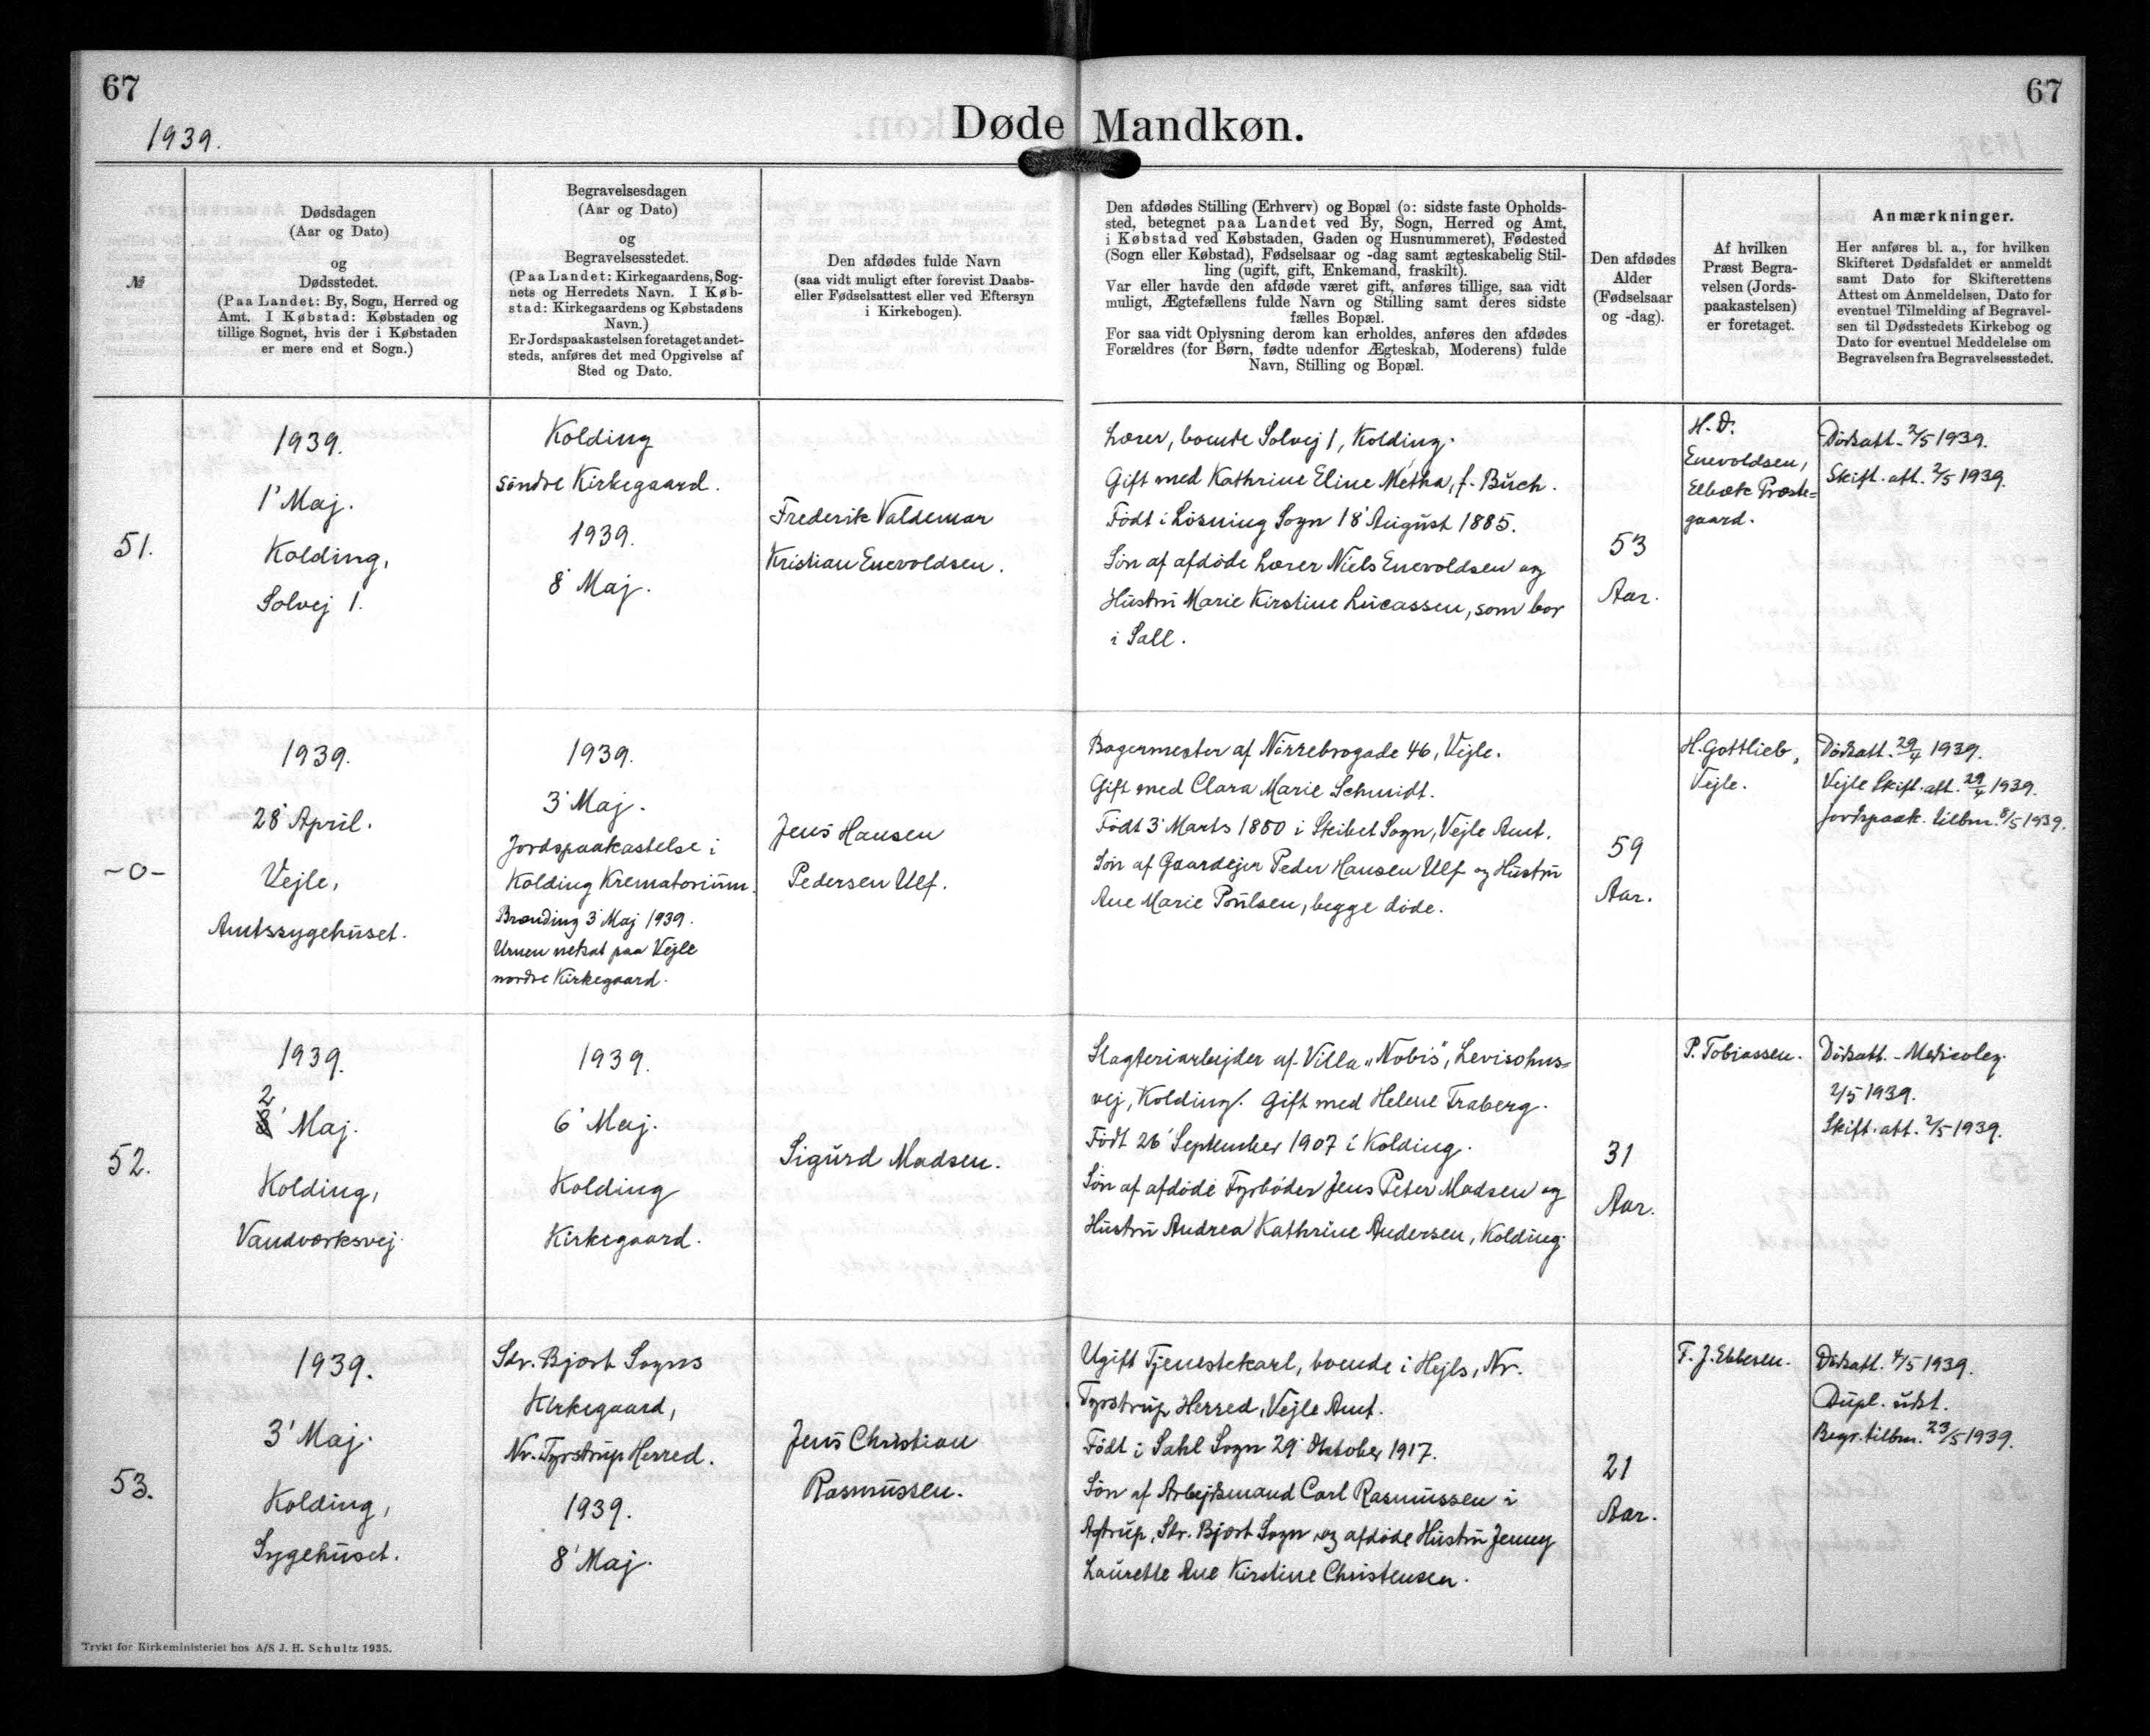 67
67
1939.
Døde Mandkøn.
№
Dødsdagen
(Aar og Dato)
og
Dødsstedet.
(Paa Landet: By, Sogn, Herred og
Amt. I Købstad: Købstaden og
tillige Sognet, hvis der i Købstaden
er mere end et Sogn.)
Begravelsesdagen
(Aar og Dato)
og
Begravelsesstedet.
(Paa Landet: Kirkegaardens, Sog-
nets og Herredets Navn. I Køb-
stad: Kirkegaardens og Købstadens
Navn.)
Er Jordspaakastelsen foretaget andet-
steds, anføres det med Opgivelse af
Sted og Dato.
Den afdødes fulde Navn
(saa vidt muligt efter forevist Daabs-
eller Fødselsattest eller ved Eftersyn
i Kirkebogen).
Den afdødes Stilling (Erhverv) og Bopæl (ɔ: sidste faste Opholds-
sted, betegnet paa Landet ved By, Sogn, Herred og Amt,
i Købstad ved Købstaden, Gaden og Husnummeret), Fødested
(Sogn eller Købstad), Fødselsaar og -dag samt ægteskabelig Stil-
ling (ugift, gift, Enkemand, fraskilt).
Var eller havde den afdøde været gift, anføres tillige, saa vidt
muligt, Ægtefællens fulde Navn og Stilling samt deres sidste
fælles Bopæl.
For saa vidt Oplysning derom kan erholdes, anføres den afdødes
Forældres (for Børn, fødte udenfor Ægteskab, Moderens) fulde
Navn, Stilling og Bopæl.
Den afdødes
Alder
(Fødselsaar
og -dag).
Af hvilken
Præst Begra-
velsen (Jords-
paakastelsen)
er foretaget.
Anmærkninger.
Her anføres bl. a., for hvilken
Skifteret Dødsfaldet er anmeldt
samt Dato for Skifterettens
Attest om Anmeldelsen, Dato for
eventuel Tilmelding af Begravel-
sen til Dødsstedets Kirkebog og
Dato for eventuel Meddelelse om
Begravelsen fra Begravelsesstedet.
51.
1939.
1' Maj.
Kolding,
Solvej 1.
Kolding
søndre Kirkegaard.
1939.
8' Maj.
Frederik Valdemar
Kristian Enevoldsen.
Lærer, boende Solvej 1, Kolding.
Gift med Kathrine Eline Metha, f. Buch.
Født i Løsning Sogn 18' August 1885.
Søn af afdøde Lærer Niels Enevoldsen og
Hustru Marie Kirstine Lucassen, som bor
i Sall.
53
Aar.
H. D.
Enevoldsen,
Elbæk Præste=
gaard.
Dødsatt. 2/5 1939.
Skift. att. 2/5 1939.
-0-
1939.
28' April.
Vejle,
Amtssygehuset.
1939.
3' Maj.
Jordspaakastelse i
Kolding Krematorium.
Brænding 3' Maj 1939.
Urnen nedsat paa Vejle
nordre Kirkegaard.
Jens Hansen
Pedersen Ulf.
Bagermester af Nørrebrogade 46, Vejle.
Gift med Clara Marie Schmidt.
Født 3' Marts 1880 i Skibet Sogn, Vejle Amt.
Søn af Gaardejer Peder Hansen Ulf og Hustru
Ane Marie Poulsen, begge døde.
59
Aar.
H. Gottlieb,
Vejle.
Dødsatt. 29/4 1939.
Vejle Skift. att. 29/4 1939.
Jordspaak. tilbm. 8/5 1939.
52.
1939.
2' Maj.
Kolding,
Vandværksvej.
1939.
6' Maj.
Kolding
Kirkegaard.
Sigurd Madsen.
Slagteriarbejder af Villa „Nobis", Levisohns=
vej, Kolding. Gift med Helene Traberg.
Født 26' September 1907 i Kolding.
Søn af afdøde Fyrbøder Jens Peter Madsen og
Hustru Andrea Kathrine Andersen, Kolding.
31
Aar.
P. Tobiassen.
Dødsatt. - Medicoleg.
2/5 1939.
Skift. att. 2/5 1939.
53.
1939.
3' Maj.
Kolding,
Sygehuset.
Sdr. Bjært Sogns
Kirkegaard,
Nr. Tyrstrup Herred.
1939.
8' Maj.
Jens Christian
Rasmussen.
Ugift Tjenestekarl, boende i Hejls, Nr.
Tyrstrup Herred, Vejle Amt.
Født i Sahl Sogn 29' Oktober 1917.
Søn af Arbejdsmand Carl Rasmussen i
Agtrup, Sdr. Bjært Sogn og afdøde Hustru Jenny
Laurette Ane Kirstine Christensen.
21
Aar.
F. J. Ebbesen.
Dødsatt. 4/5 1939.
Dupl. udst.
Begr. tilbm. 23/5 1939.
Trykt for Kirkeministeriet hos A/S J. H. Schultz 1935.